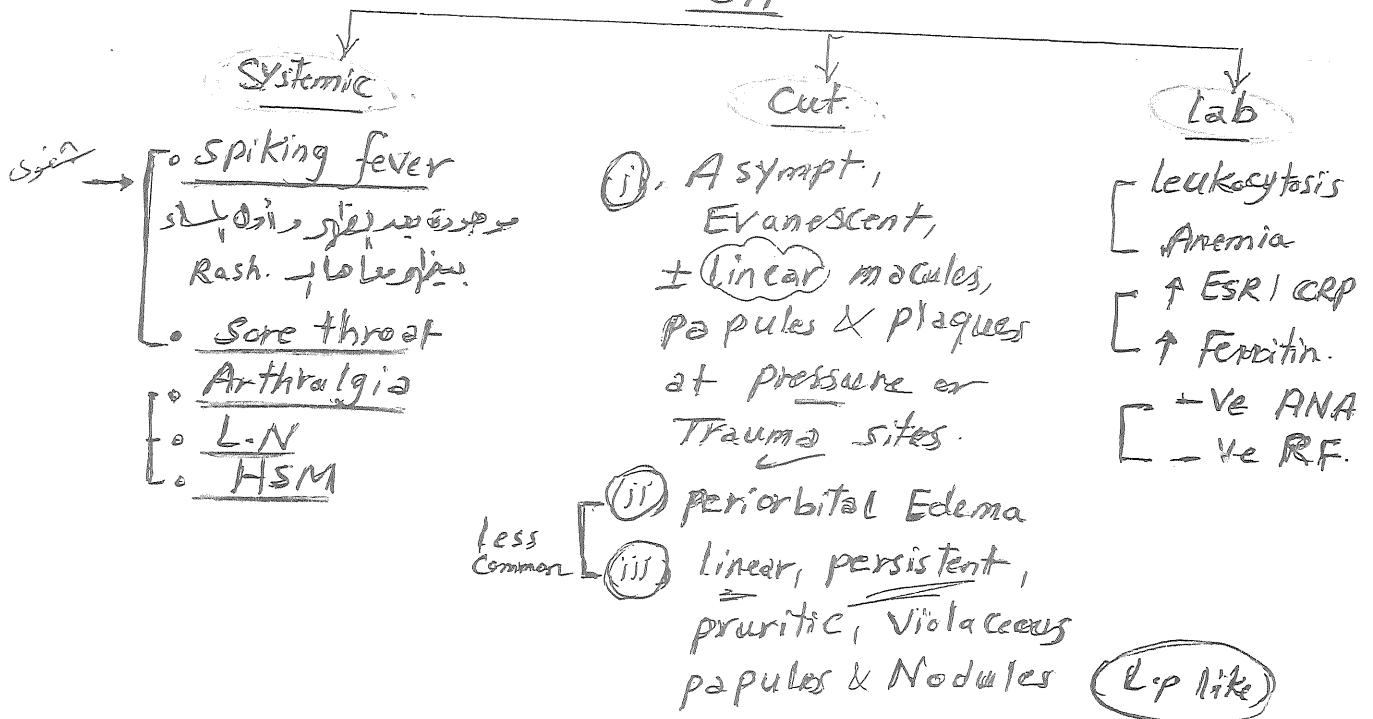 Systemic
شفوى
• Spiking fever
موجودة بعد الظهر وأول المساء
بيظهر معاها الـ Rash.
• Sore throat
• Arthralgia
• L.N
• HSM
Cut.
i. Asympt.,
Evanescent,
± linear macules,
papules & plaques
at pressure or
Trauma sites.
less
common
ii periorbital Edema
iii linear, persistent,
pruritic, Violaceous
papules & Nodules
L.p like
Lab
leukocytosis
Anemia
↑ ESR / CRP
↑ Ferritin.
-Ve ANA
-Ve RF.